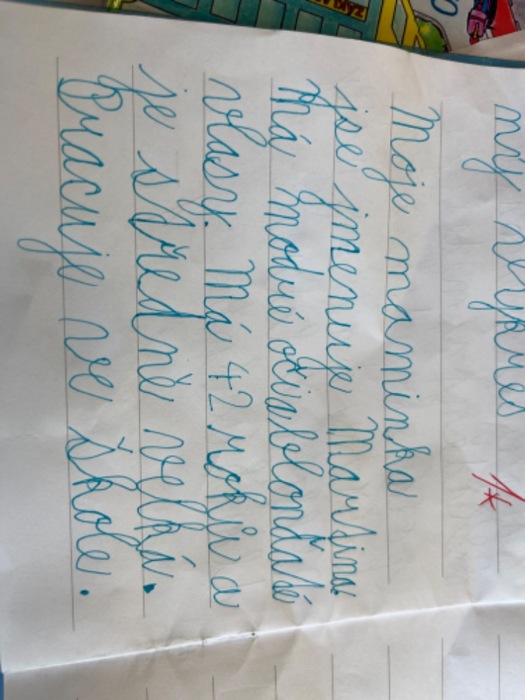 my
1*
Moje maminka
jse jmenuje Martina.
Má modré oči a blonďaté
vlasy. Má 42 roků a
je středně velká.
Pracuje ve škole.